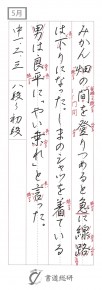 5月
みかん畑の間を登りつめると急に線路
はホりになった。しまのシャツを着ている
男は良平に「やい乗れ」と言った。
中一、二、三　八段～初段
書道総研